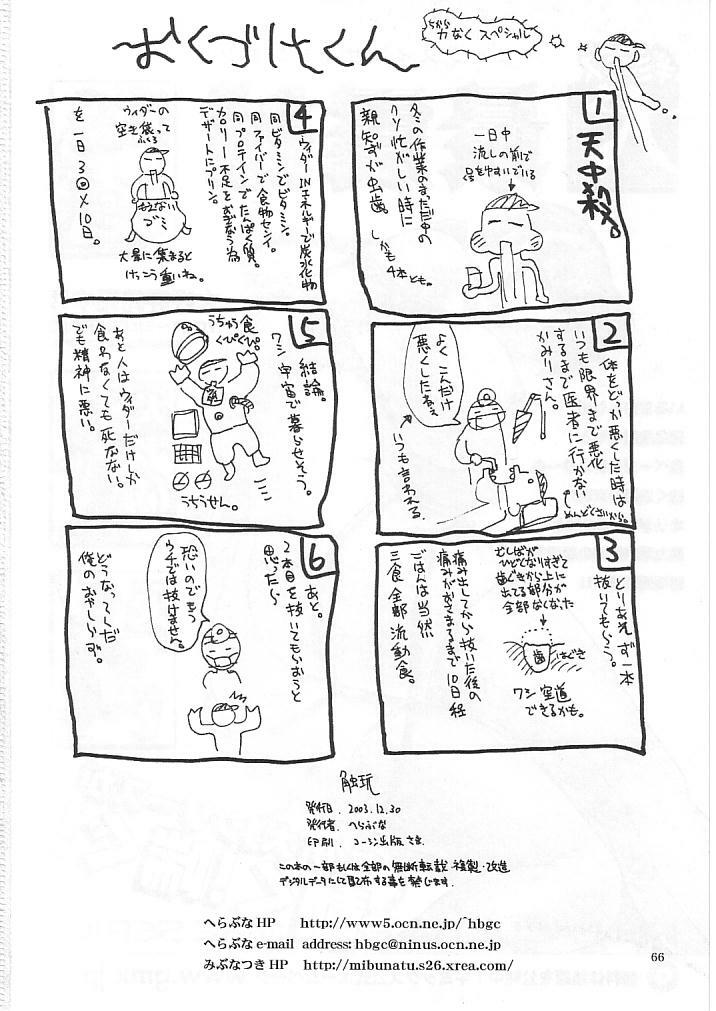 おくづけくん
力なくスペシャル
ちから
1
天中殺。
冬の作業のまっただ中の
クソ忙がしい時に
親知ずが虫歯。
しかも4本とも。
一日中
流しの前で
2
体をどっか悪くした時は
いつも限界まで悪化
するまで医者に行かない
かみりさん。
めんどくさいから。
よくこんだけ
悪くしたねぇ
いつも言われる
3
とりあえず一本
抜いてもらう。
ひどすぎて
歯ぐきから上に
出てる部分が
全部なくなった
はぐき
歯
ワシ空道
できるかも。
痛み出してから抜いた後の
痛みがおさまるまで10日程
ごはんは当然
三食全部流動食。
4
ウィダーINエネルギーで炭水化物
同ビタミンでビタミン。
同ファイバーで食物センイ。
同プロテインでたんぱく質。
カロリー不足をおぎなう為
デザートにプリン。
を一日3回×10日。
ウィダーの
空き袋って
もえない
ゴミ
大量に集まると
けっこう重いね。
5
結論。
ワシ宇宙で暮らせそう。
うちゅう食
くぴくぴ。
うちうせん。
あと人はウィダーだけしか
食わなくても死なない。
でも精神に悪い。
6
あと。
2本目を抜いてもらおうと
思ったら
恐いのでもう
ウチでは抜けません。
どうなってんだ
俺のおやしらず。
触玩
発行日. 2003.12.30
発行者. へらぶな
印刷. コーシン出版さま
この本の一部もしくは全部の無断転載・複製・改造
デジタルデータにして配布する事を禁じます.
へらぶなHP http://www5.ocn.ne.jp/~hbgc
へらぶなe-mail address: hbgc@ninus.ocn.ne.jp
みぶなつきHP http://mibunatu.s26.xrea.com/
66